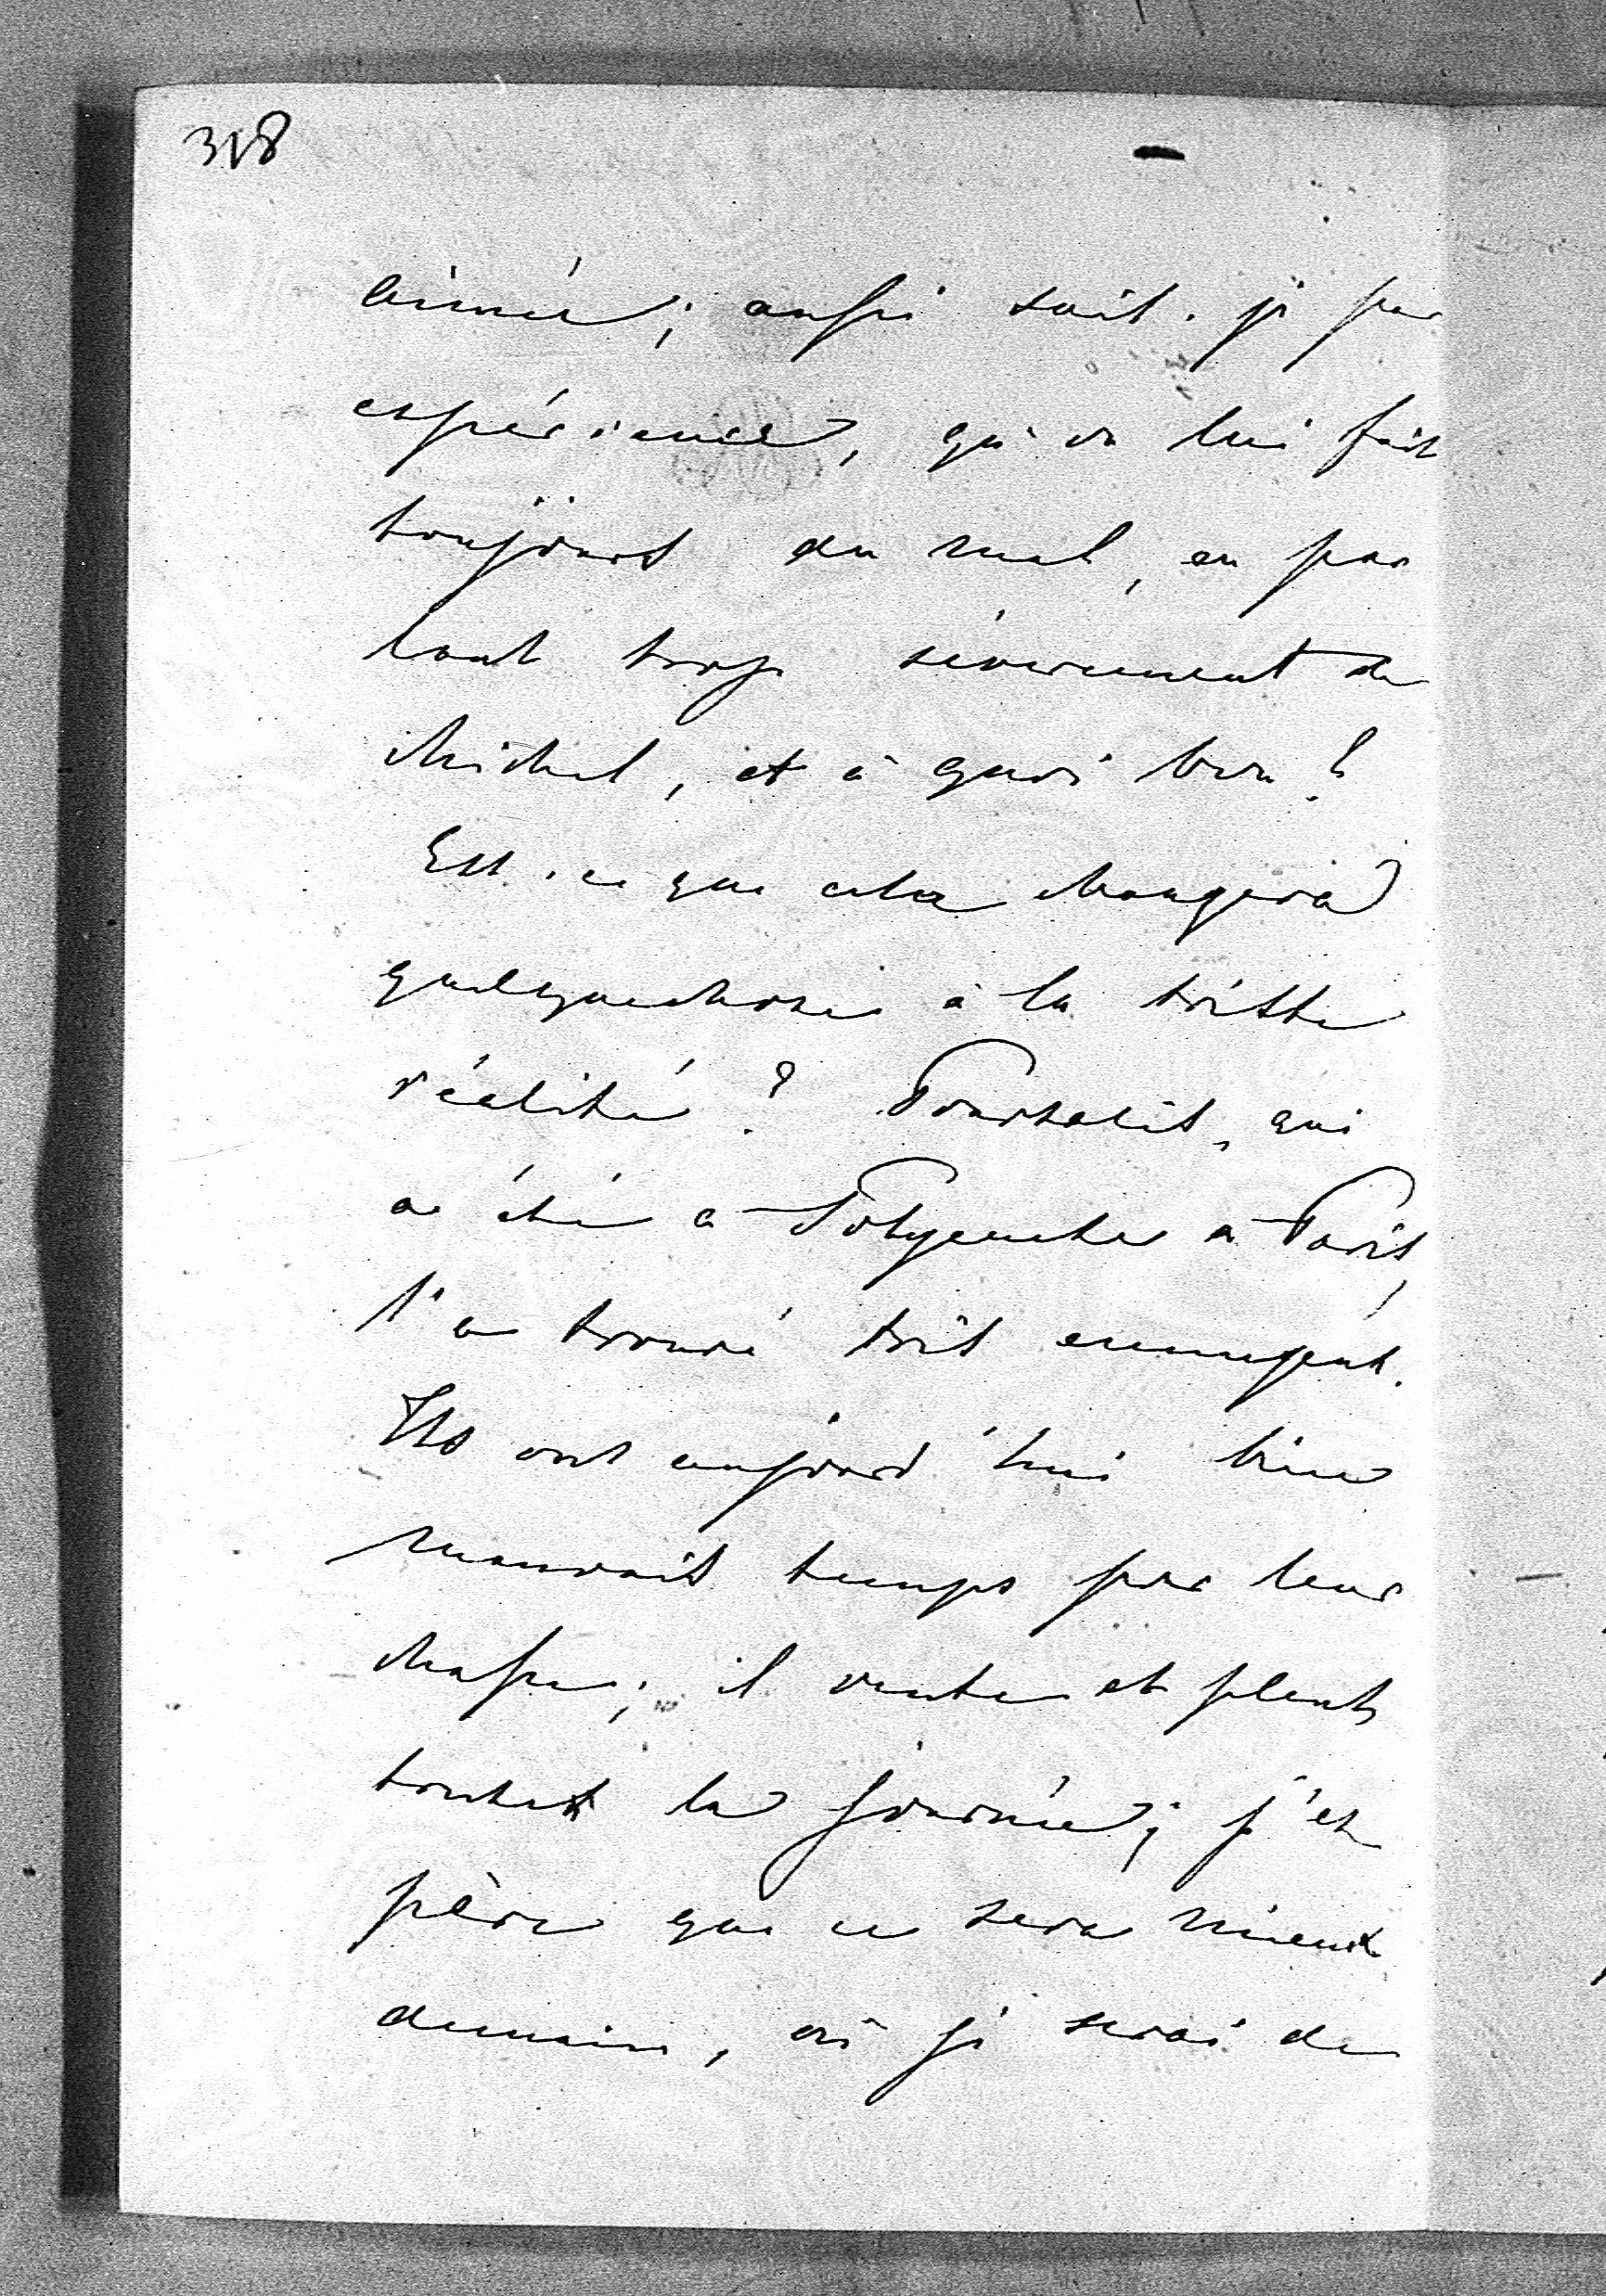 318
aimée; aussi sait-je par
expérience, qu'on lui fait
toujours du mal, en par
lant trop sévèrement de
Michel, et à quoi bon!
Est-ce que cela changera
quelquechose à la triste
réalité? Pourtalès, qui
a été a à Paris,
l'a trouvé très ennuyent.
Ils ont aujourd'hui bien
mauvais temps pour leur
chasse; il vente et pleut
toute la journée; j'es
père que ce sera mieux
demain, où je serai de